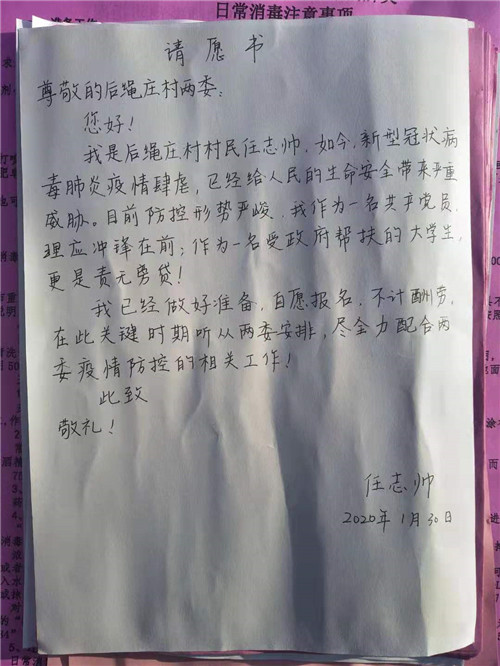 日常消毒注意事项
请愿书
尊敬的后绳庄村两委：
您好！
我是后绳庄村村民任志帅，如今，新型冠状病
毒肺炎疫情肆虐，已经给人民的生命安全带来严重
威胁。目前防控形势严峻，我作为一名共产党员，
理应冲锋在前；作为一名受政府帮扶的大学生，
更是责无旁贷！
我已经做好准备，自愿报名，不计酬劳，
在此关键时期听从两委安排，尽全力配合两
委疫情防控的相关工作！
此致
敬礼！
任志帅
2020年1月30日